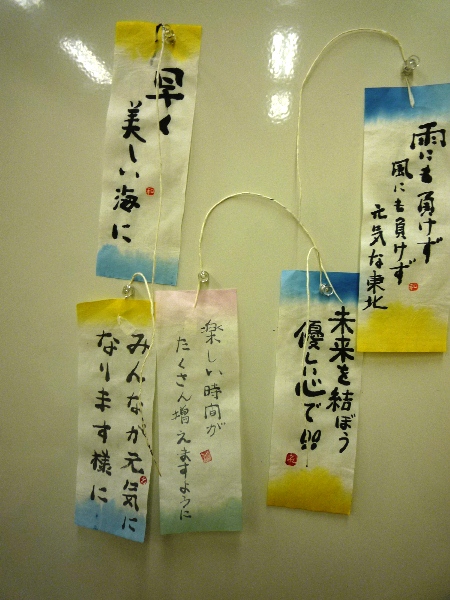 早く
美しい海に
雨にも負けず
風にも負けず
元気な東北
みんなが元気に
なります様に
楽しい時間が
たくさん増えますように
未来を結ぼう
優しい心で!!